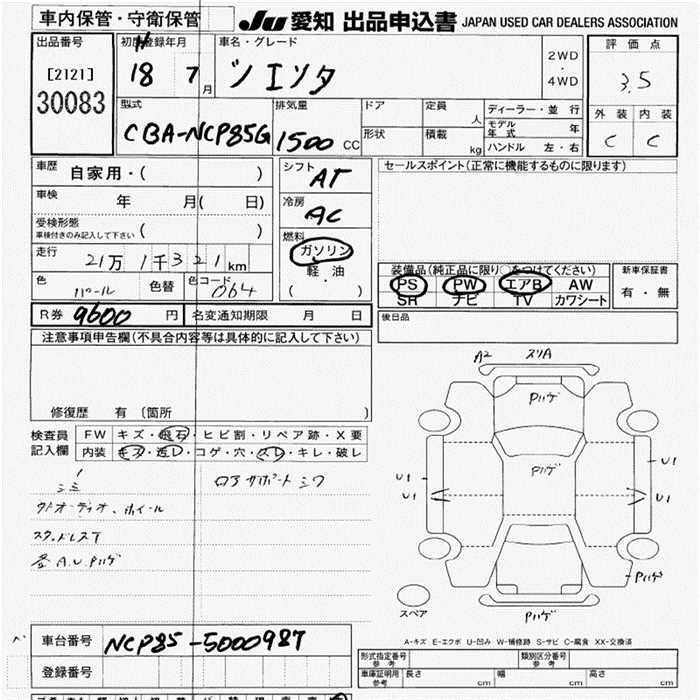 車内保管・守衛保管 JU 愛知 出品申込書 JAPAN USED CAR DEALERS ASSOCIATION
出品番号 [2121] 30083
初度登録年月 H 18 7月
車名・グレード シエンタ
2WD・4WD
評価点 3.5
外装 内装
C C
型式 CBA-NCP85G
排気量 1500 CC
ドア 形状
定員 人
積載 kg
ディーラー・並行
モデル年式 年
ハンドル 左・右
車歴 自家用・( )
車検 年 月( 日)
受検形態 車検付きのみ記入して下さい ( )
走行 21万1千321km
色 パール 色替 色コード 064
シフト AT
冷房 AC
燃料 ガソリン
軽・油
( ・ )
セールスポイント(正常に機能するものに限ります)
装備品(純正品に限り○をつけてください)
PS PW エアB AW
SR ナビ TV カワシート
新車保証書
有・無
R券 9600円 名変通知期限 月 日
後日品
注意事項申告欄(不具合内容等は具体的に記入して下さい)
修復歴 有 (箇所 )
検査員記入欄
FW キズ・飛石・ヒビ割・リペア跡・X要
内装 キズ・汚レ・コゲ・穴・スレ・キレ・破レ
シミ ロアサポートシワ
外オーディオ、ホイール
スタッドレスT
各A.U.Pハゲ
A2 スリA
Pハゲ
Pハゲ
U1 U1
U1 U1
Pハゲ
Pハゲ
スペア
A-キズ E-エクボ U-凹み W-補修跡 S-サビ C-腐食 XX-交換済
車台番号 NCP85-5000987
登録番号
形式指定番号 参考
類別区分番号 参考
車庫証明用 参考 長さ cm 幅 cm 高さ cm